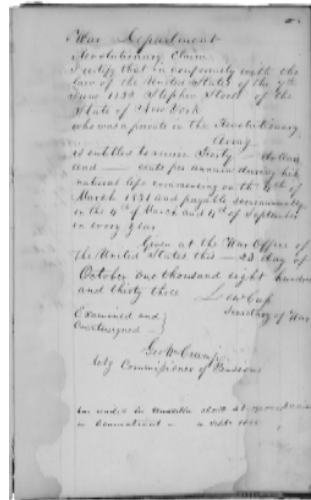 War Department
Revolutionary Claim
I certify that in conformity with the
law of the United States of the 7th
June 1832 Stephen Stord of the
State of New York
who was a private in the Revolutionary
Army
is entitled to receive Forty — dollars
and — cents per annum during his
natural life commencing on the 4th of
March 1831 and payable semiannually
on the 4th of March and 4th of September
in every year
Given at the War Office of
the United States this — 23 day of
October one thousand eight hundred
and thirty three
Lew Cass
Secretary of War
Examined and
Countersigned
Geo W Crump
Actg Commissioner of Pensions
in Connecticut